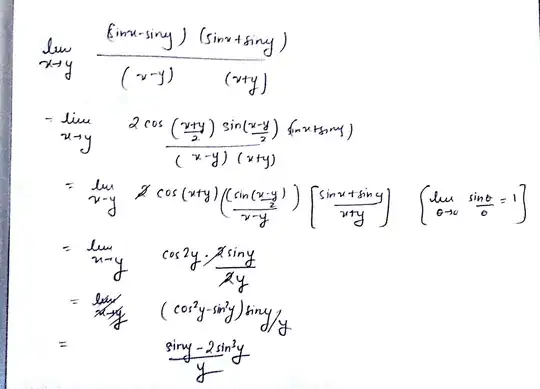 lim x→y (sinx-siny) (sinx+siny) / (x-y) (x+y)
= lim x→y 2 cos (x+y/2) sin(x-y/2) (sinx+siny) / (x-y) (x+y)
= lim x→y 2 cos (x+y) (sin(x-y)/2 / x-y) [sinx+siny / x+y] [lim θ→0 sinθ/θ = 1]
= lim x→y cos2y . 2siny / 2y
= lim x→y (cos²y-sin²y) siny/y
= siny - 2sin³y / y